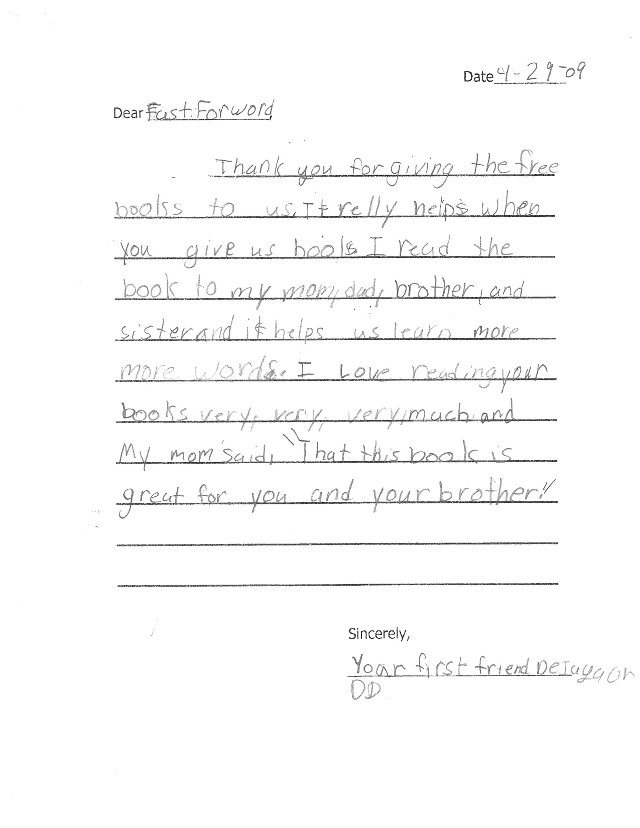 Date 4-29-09
Dear Fast Forword
Thank you for giving the free
books to us. It relly helps when
you give us books I read the
book to my mom, dad, brother, and
sister and it helps us learn more
more words. I Love reading your
books very, very, very, much and
My mom said, "That this book is
great for you and your brother!"
Sincerely,
Your first friend
DD